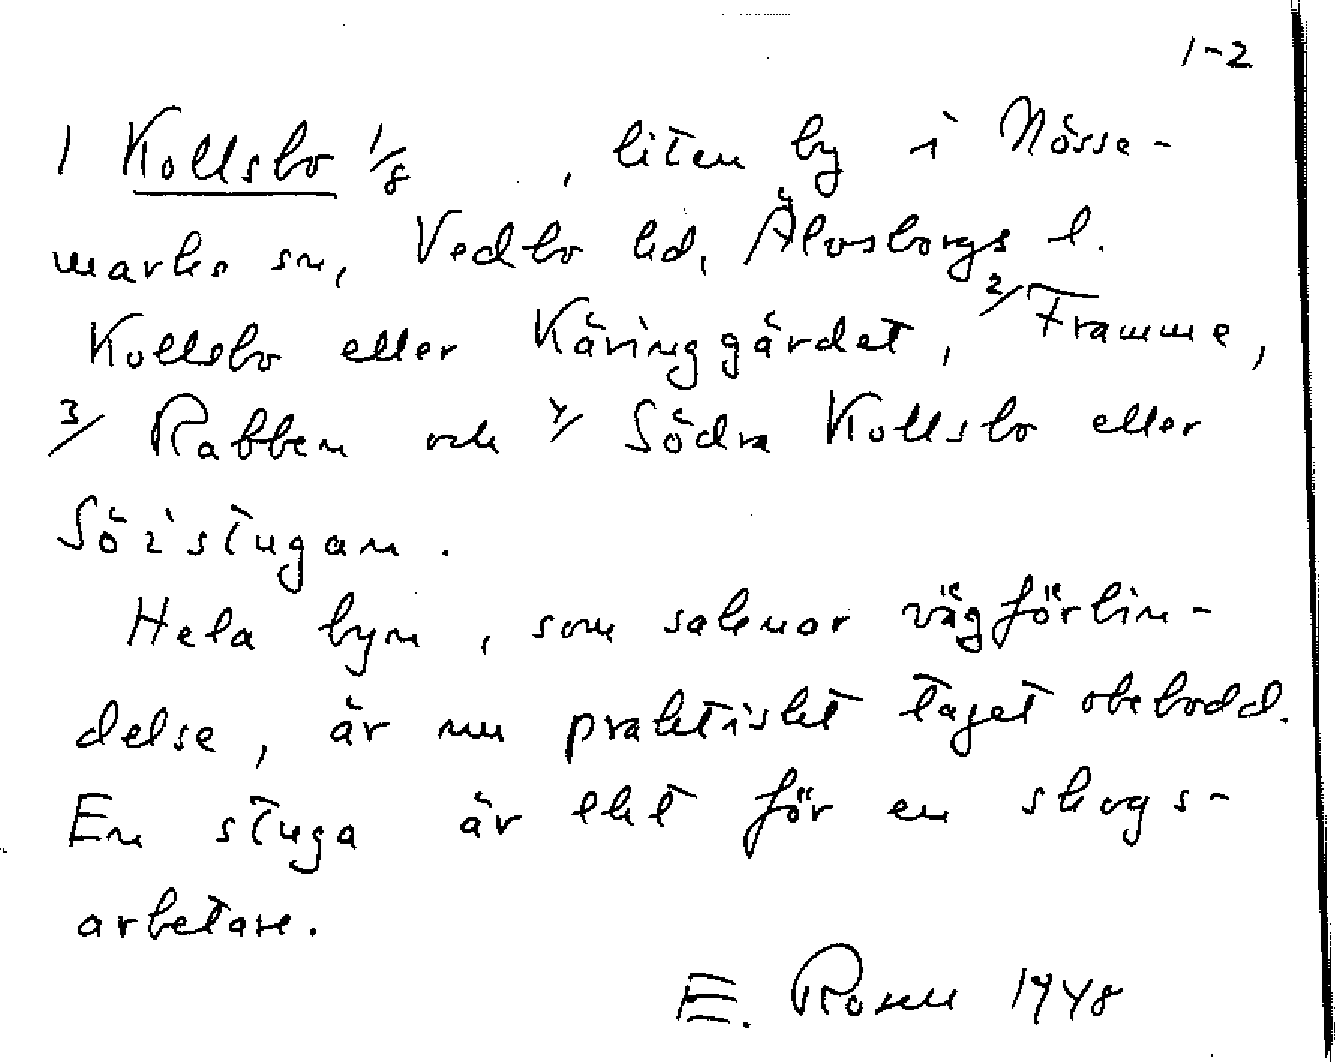 1-2
1 Kollsbo 1/8 , liten by i Nösse-
marks sn, Vedbo hd, Älvsborgs l.
Kollsbo eller Käringgärdet, 2/ Framme,
3/ Rabben och 4/ Södra Kollsbo eller
Sör i stugan.
Hela byn, som saknar vägförbin-
delse, är nu praktiskt taget obebodd.
En stuga är
för en skogs-
arbetare.
E. Rosen 1948